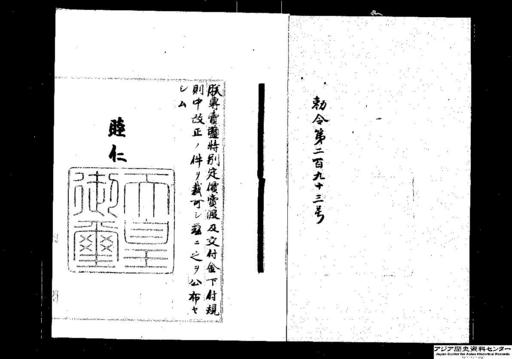 勅令第二百九十三号
朕専売塩特別定価売渡及交付金下付規
則中改正ノ件ヲ裁可シ茲ニ之ヲ公布セ
シム
睦仁
天皇
御璽
アジア歴史資料センター
Japan Center for Asian Historical Records